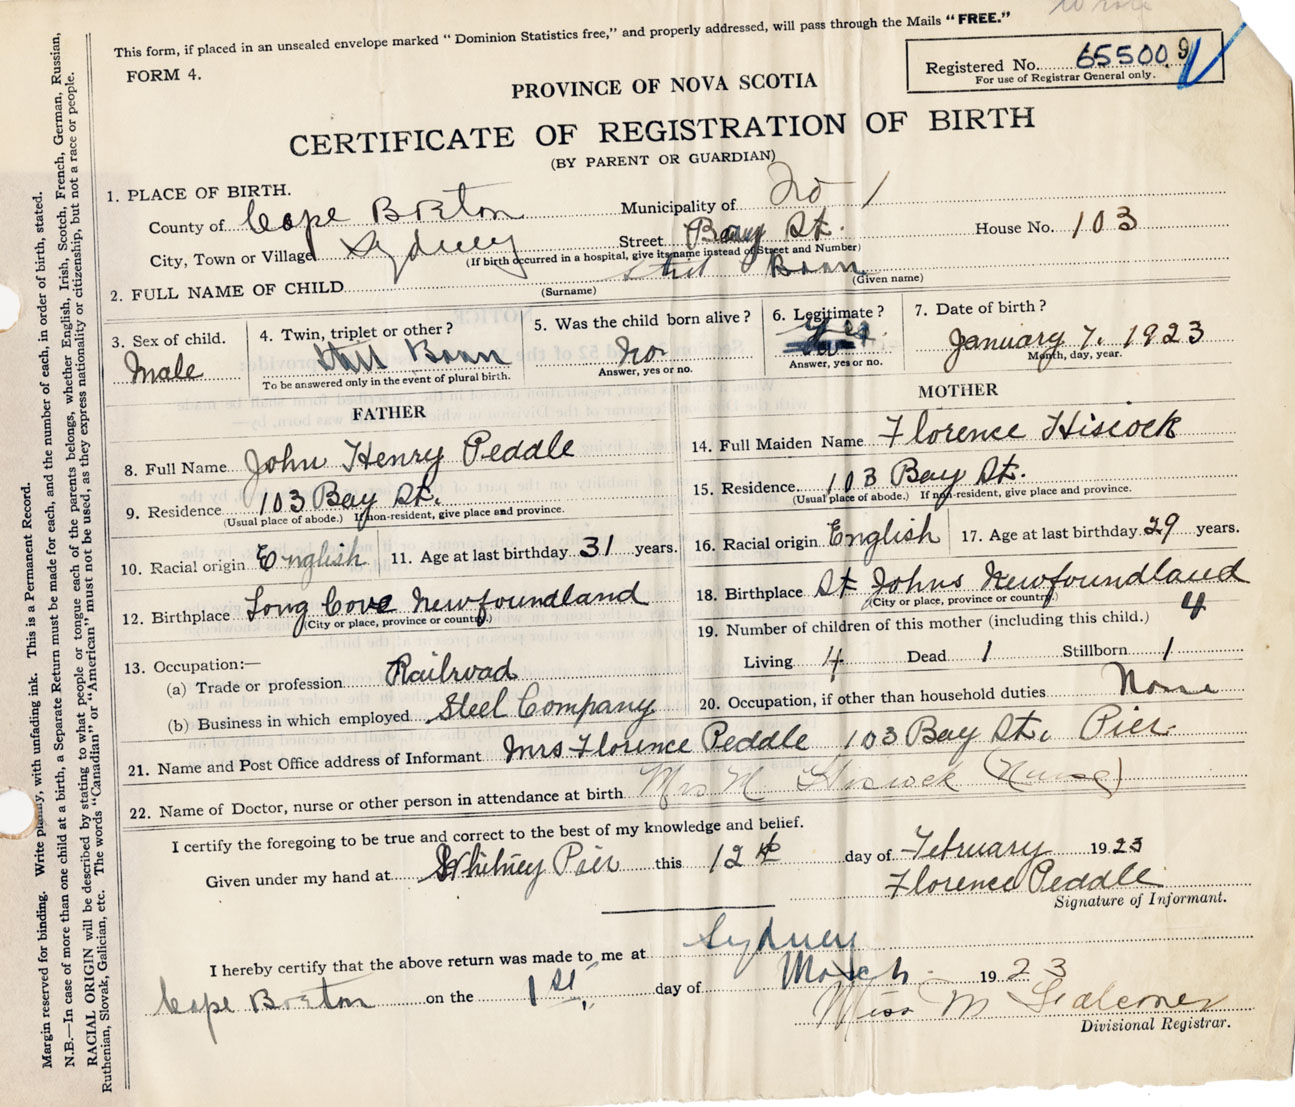 This form, if placed in an unsealed envelope marked “ Dominion Statistics free,” and properly addressed, will pass through the Mails “FREE.”
FORM 4.
Registered No. 65500 9
For use of Registrar General only.
PROVINCE OF NOVA SCOTIA
CERTIFICATE OF REGISTRATION OF BIRTH
(BY PARENT OR GUARDIAN)
1. PLACE OF BIRTH.
County of Cape Breton Municipality of No 1
City, Town or Village Sydney Street Bay St. House No. 103
(If birth occurred in a hospital, give its name instead of Street and Number)
2. FULL NAME OF CHILD Still Born
(Surname) (Given name)
3. Sex of child. Male
4. Twin, triplet or other ? Still Born
To be answered only in the event of plural birth.
5. Was the child born alive ? No.
Answer, yes or no.
6. Legitimate ? Yes
Answer, yes or no.
7. Date of birth ? January 7, 1923
Month, day, year.
FATHER
8. Full Name John Henry Peddle
9. Residence 103 Bay St.
(Usual place of abode.) If non-resident, give place and province.
10. Racial origin English 11. Age at last birthday 31 years.
12. Birthplace Long Cove Newfoundland
(City or place, province or country.)
13. Occupation:—
(a) Trade or profession Railroad
(b) Business in which employed Steel Company
MOTHER
14. Full Maiden Name Florence Hiscock
15. Residence 103 Bay St.
(Usual place of abode.) If non-resident, give place and province.
16. Racial origin English 17. Age at last birthday 29 years.
18. Birthplace St Johns Newfoundland
(City or place, province or country.)
19. Number of children of this mother (including this child.) 4
Living 4 Dead 1 Stillborn 1
20. Occupation, if other than household duties None
21. Name and Post Office address of Informant Mrs Florence Peddle 103 Bay St. Pier
22. Name of Doctor, nurse or other person in attendance at birth Mrs M Hiscock (Nurse)
I certify the foregoing to be true and correct to the best of my knowledge and belief.
Given under my hand at Whitney Pier this 12th day of February 1923
Florence Peddle
Signature of Informant.
I hereby certify that the above return was made to me at Sydney
Cape Breton on the 1st. day of March 1923
Miss M Falconer
Divisional Registrar.
Margin reserved for binding. Write plainly, with unfading ink. This is a Permanent Record.
N.B.—In case of more than one child at a birth, a Separate Return must be made for each, and the number of each, in order of birth, stated.
RACIAL ORIGIN will be described by stating to what people or tongue each of the parents belongs, whether English, Irish, Scotch, French, German, Russian,
Ruthenian, Slovak, Galician, etc. The words “Canadian” or “American” must not be used, as they express nationality or citizenship, but not a race or people.